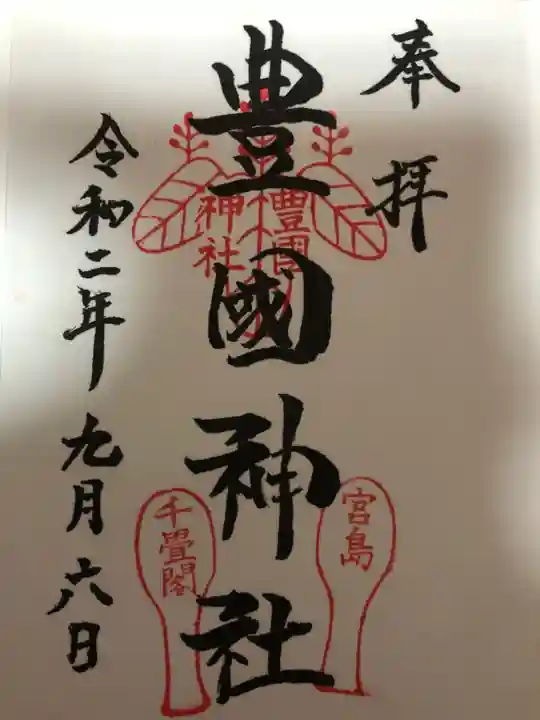 奉拝
豊國神社
豊國
神社
宮島
千畳閣
令和二年九月六日